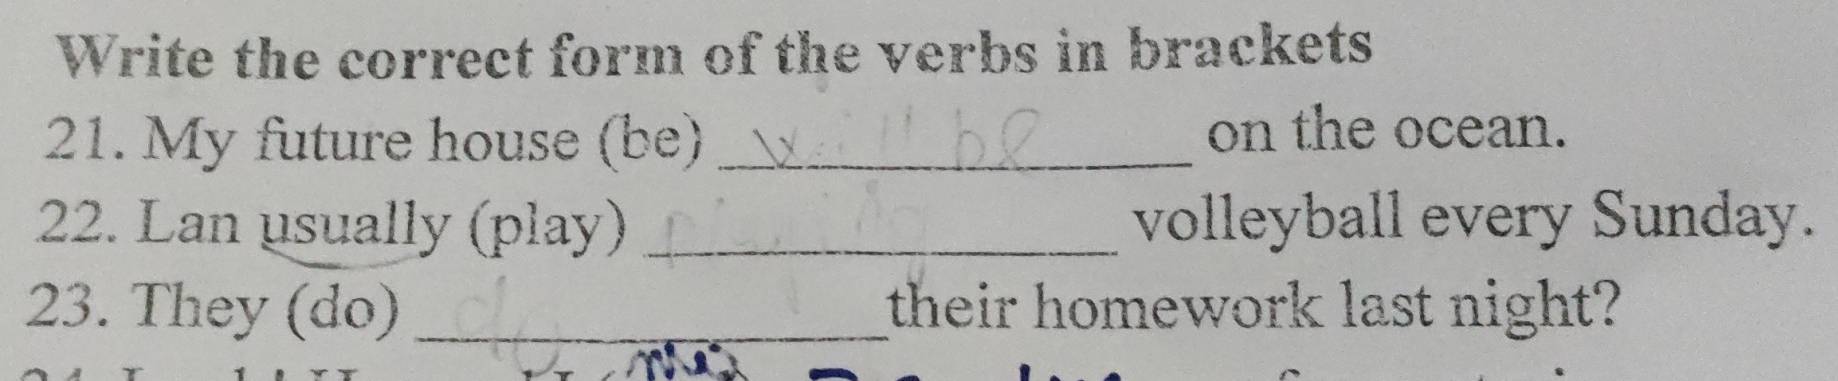 Write the correct form of the verbs in brackets
21. My future house (be) will be on the ocean.
22. Lan usually (play) playing volleyball every Sunday.
23. They (do) do their homework last night?